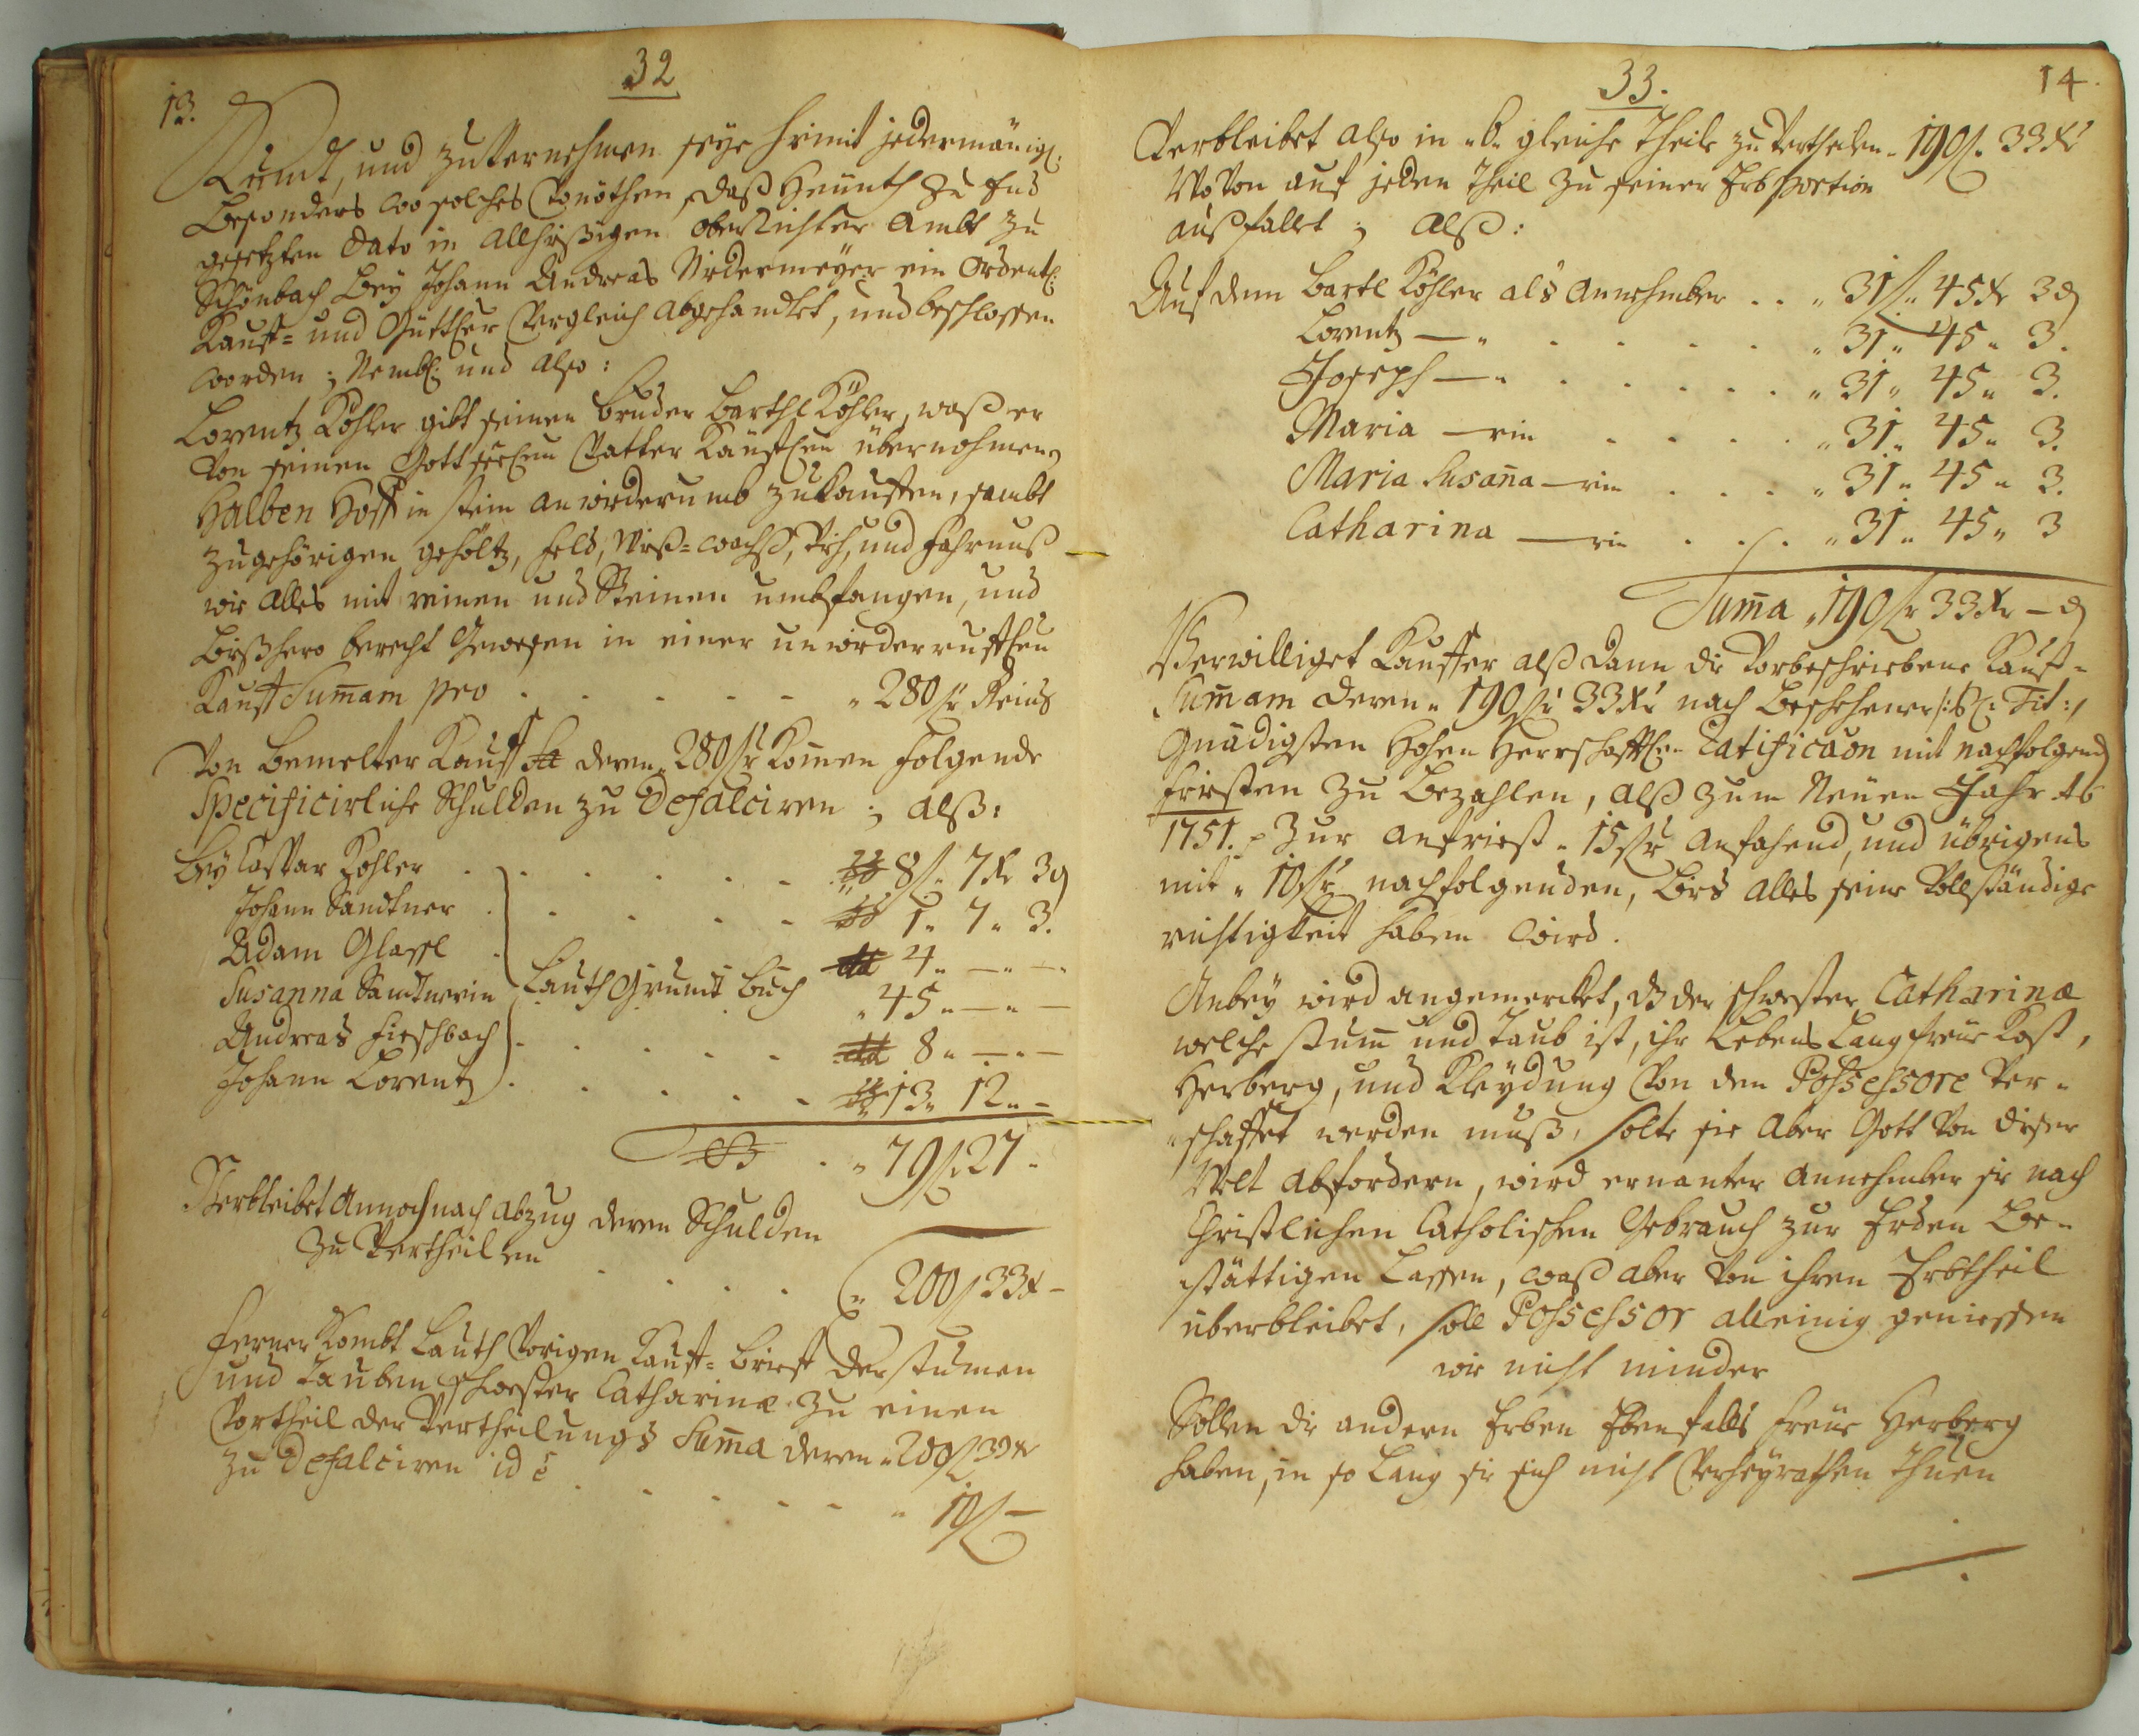 32
13.
Kundt, und zu Vernehmen seye hiemit jedermänigl:
besonders wo solches Vonöthen, daß Heünth zu End
gesetzten Dato in allhießigen Oberrichter Ambt zu
Schönbach bey Johann Andreas Nidermeyer ein Ordentl:
Kauff= und Güttler Vergleich abgehandlet, und beschlossen
worden; Nembl: und also:
Lorentz Köhler gibt seinen bruder Barthl Köhler, waß er
Von seinen Gott seeligen Vatter Käufflen übernohmen,
Halben Hoff in Stein an widerumb zu kauffen, sambt
zugehörigen geholtz, feld, Wieß=wachß, Vieh, und fahrnuß
wie alles mit reinen und Steinen umbfangen, und
bißhero berecht Gewesen in einer unwiderrufflen
Kauff Sum̄am pro . . . . . . „ 280 fr Reins
Von bemelter Kauff deren „ 280 fr Kom̄en folgende
Specificirliche Schulden zu Defalciren; alß:
Bey Casspar Kohler . . . . . . 8 f „ 7 xr 3 ₰
Johann Sandtner . . . . . 1 „ 7 „ 3.
Adam Glassl . 4 „ — „ —
Susanna Sandtnerin Lauth Grundt Buch „ 45 „ — „ —
Andreas Fischbach . . . . . 8 „ — „ —
Johann Lorentz . . . . . 13 „ 12 „ —
. „ 79 f 27 „
Verbleibet Annoch nach abzug deren Schulden
zu Vertheilen . . . „ 200 f 33 x —
Ferner Kombt Lauth Vorigen Kauff= brieff der stumen
und tauben schwester Catharinæ zu einen
Vortheil der Vertheilungs Sum̄a deren „ 200 f 33 xr
zu Defalciren id ē . . . . . . „ 10 f —
33.
14
Verbleibet also in „ 6 „ gleiche Theile zu Vertheilen „ 190 f. 33 xr
Wo Von auf jeden Theil zu seiner Erbs portion
außfallet; alß:
Auf denn Bartl Köhler als annehmber . . „ 31 f „ 45 xr 3 ₰
Lorentz — „ . . . . . „ 31 „ 45 „ 3.
Joseph — „ . . . . . „ 31 „ 45 „ 3.
Maria — rin . . . . „ 31 „ 45 „ 3.
Maria Susan̄a — rin . . . „ 31 „ 45 „ 3.
Catharina — rin . . . „ 31 „ 45 „ 3
Sum̄a „ 190 fr 33 xr — ₰
Verwilliget Kauffer alß dann die Vorbeschriebene Kauf=
Sum̄am deren „ 190 fr 33 xr nach beschehener /: Tit: /
Gnädigsten Hohen Herrschafftlen Ratificāon mit nachfolgend
fristen zu bezahlen, alß zum Neüen Jahr Ao
1751. zur anfriest „ 15 fr anfahend, und übrigens
mit „ 10 fr nachfolgenden, bies alles seine Vollständige
richtigkeit haben wird.
Anbey wird angemercket, dz der schwester Catharinæ
welche stum̄ und taub ist, ihr Lebens Lang freüe Kost,
Herberg, und Kleydung Von den Possessore Ver=
schaffet werden muß, solte sie aber Gott Von dieser
Welt abfordern, wird ernanter annehmber sie nach
Christlichen Catholischen Gebrauch zur Erden be=
stättigen Lassen, waß aber Von ihren Erbtheil
überbleibet, soll Possessor alleinig geniessen
wie nicht minder
Sollen die andern Erben Ebenfalls freüe Herberg
haben, in so Lang sie sich nicht Verheyrathen thuen